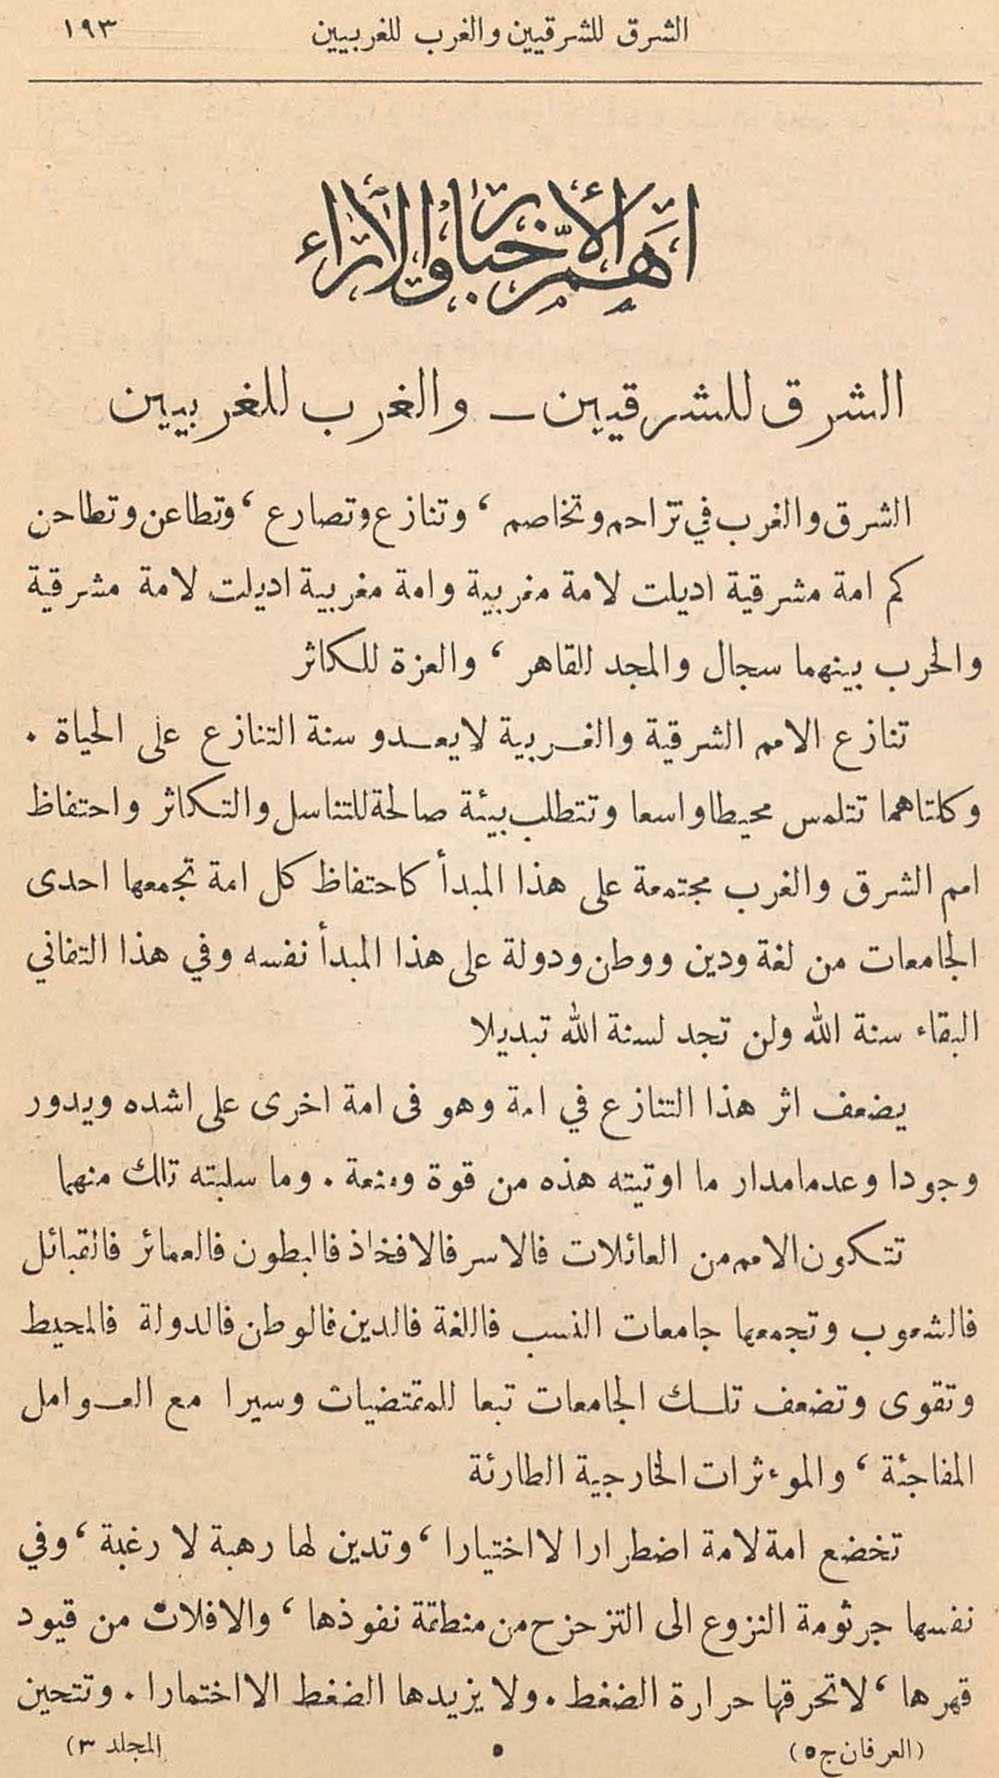 الشرق للشرقيين والغرب للغربيين ١٩٣
اهم الأخبار والأراء
الشرق للشرقيين — والغرب للغربيين
الشرق والغرب في تزاحم وتخاصم ، وتنازع وتصارع ، وتطاعن وتطاحن
كم امة مشرقية اديلت لامة مغربية وامة مغربية اديلت لامة مشرقية
والحرب بينهما سجال والمجد للقاهر ، والعزة للكاثر
تنازع الامم الشرقية والغربية لا يعدو سنة التنازع على الحياة .
وكلتاهما تتلمس محيطا واسعا وتتطلب بيئة صالحة للتناسل والتكاثر واحتفاظ
امم الشرق والغرب مجتمعة على هذا المبدأ كاحتفاظ كل امة تجمعها احدى
الجامعات من لغة ودين ووطن ودولة على هذا المبدأ نفسه وفي هذا التفاني
البقاء سنة الله ولن تجد لسنة الله تبديلا
يضعف اثر هذا التنازع في امة وهو فى امة اخرى على اشده ويدور
وجودا وعدما مدار ما اوتيته هذه من قوة ومنعة . وما سلبته تلك منهما
تتكون الامم من العائلات فالاسر فالافخاذ فالبطون فالعمائر فالقبائل
فالشعوب وتجمعها جامعات النسب فاللغة فالدين فالوطن فالدولة فالمحيط
وتقوى وتضعف تلك الجامعات تبعا للمقتضيات وسيرا مع العوامل
المفاجئة ، والموءثرات الخارجية الطارئة
تخضع امة لامة اضطرارا لا اختيارا ، وتدين لها رهبة لا رغبة ، وفي
نفسها جرثومة النزوع الى التزحزح من منطقة نفوذها ، والافلات من قيود
قهرها ، لا تحرقها حرارة الضغط . ولا يزيدها الضغط الا اختمارا . وتتحين
(العرفان ج٥) ٥ (المجلد ٣)